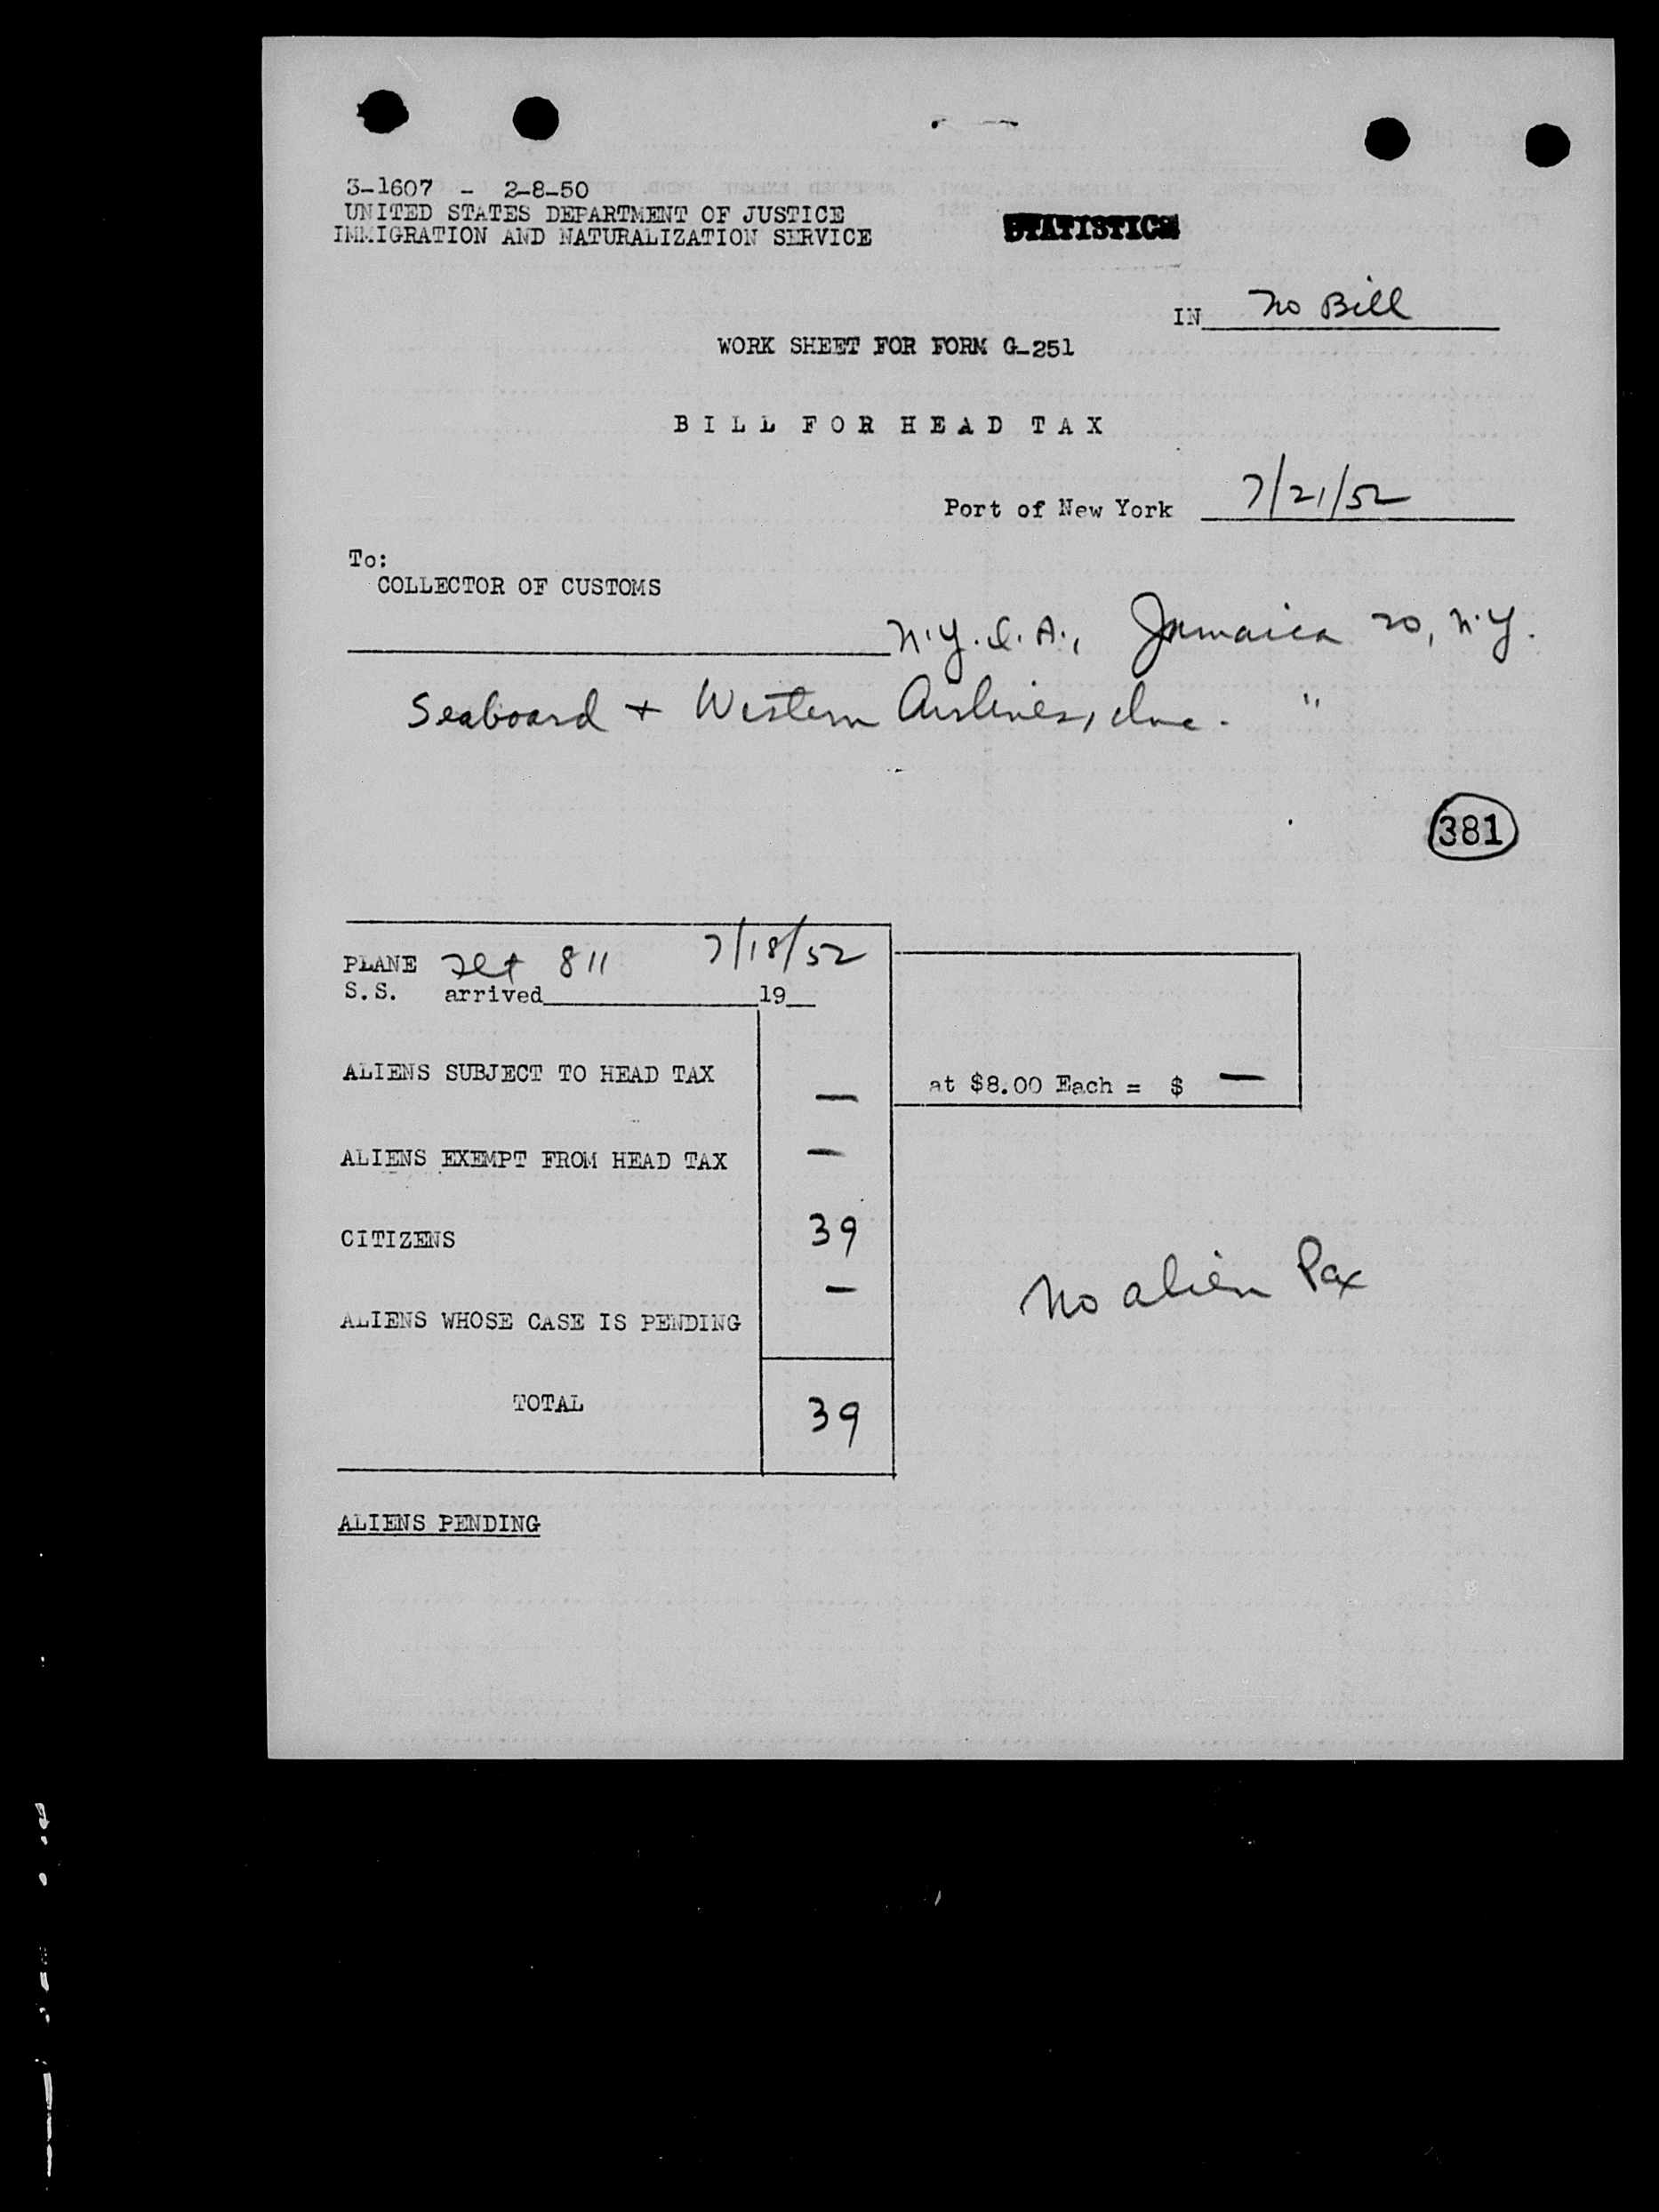 3-1607 - 2-8-50
UNITED STATES DEPARTMENT OF JUSTICE
IMMIGRATION AND NATURALIZATION SERVICE
STATISTICS
IN No Bill
WORK SHEET FOR FORM G-251
BILL FOR HEAD TAX
Port of New York 7/21/52
To:
COLLECTOR OF CUSTOMS
N.Y.I.A., Jamaica 20, N.Y.
Seaboard + Western Airlines, Inc. "
381
PLANE Flt 811 7/18/52
S.S. arrived 19
ALIENS SUBJECT TO HEAD TAX —
at $8.00 Each = $ —
ALIENS EXEMPT FROM HEAD TAX —
CITIZENS 39
ALIENS WHOSE CASE IS PENDING —
No alien Pax
TOTAL 39
ALIENS PENDING